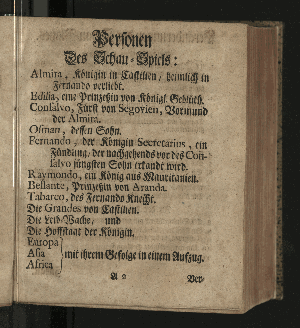 Personen
Des Schau-Spiels:
Almira, Königin in Castilien/ heimlich in
Fernando verliebt.
Edilia, eine Printzeßin von Königl. Geblüth.
Consalvo, Fürst von Segovien, Vormund
der Almira.
Osman, dessen Sohn.
Fernando, der Königin Secretarius, ein
Fündling, der nachgehends vor des Con-
salvo jüngsten Sohn erkandt wird.
Raymondo, ein König aus Mauritanien.
Bellante, Printzeßin von Aranda.
Tabarco, des Fernando Knecht.
Die Grandes von Castilien.
Die Leib-Wache, und
Die Hoffstatt der Königin.
Europa
Asia
Africa
mit ihrem Gefolge in einem Aufzug.
A 2 Ver-